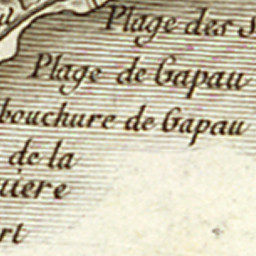 Plage des S
Plage de Gapau
bouchure de Gapau
de la
uiere
rt